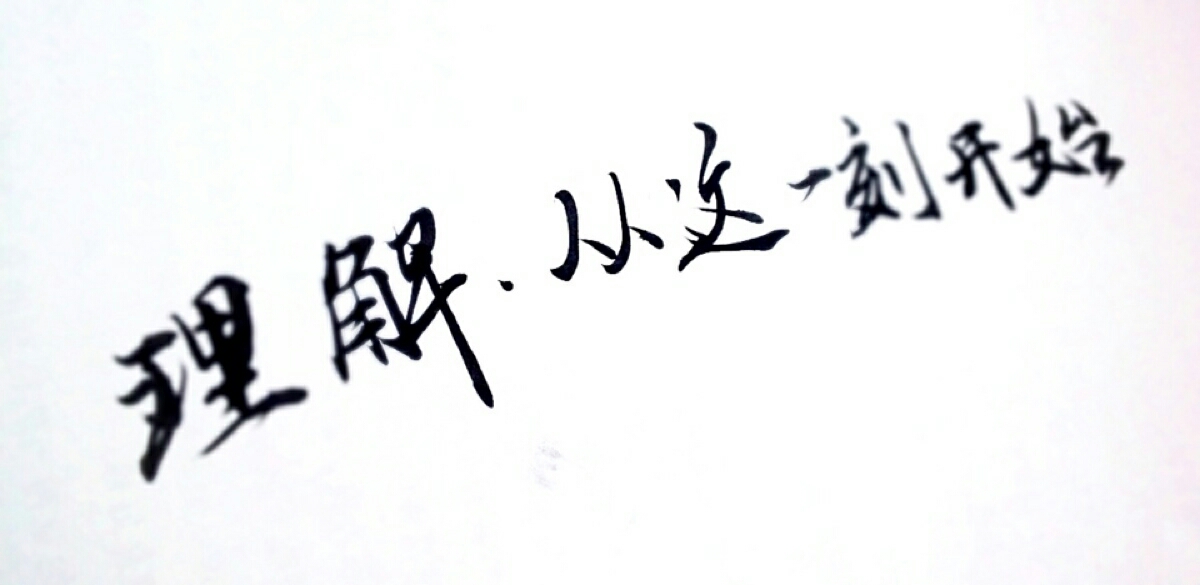 理解、从这一刻开始